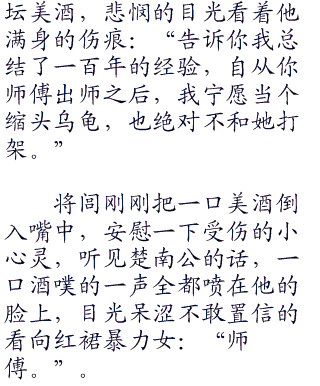 坛美酒，悲悯的目光看着他
满身的伤痕：“告诉你我总
结了一百年的经验，自从你
师傅出师之后，我宁愿当个
缩头乌龟，也绝对不和她打
架。”
将闾刚刚把一口美酒倒
入嘴中，安慰一下受伤的小
心灵，听见楚南公的话，一
口酒噗的一声全都喷在他的
脸上，目光呆涩不敢置信的
看向红裙暴力女：“师
傅。”。